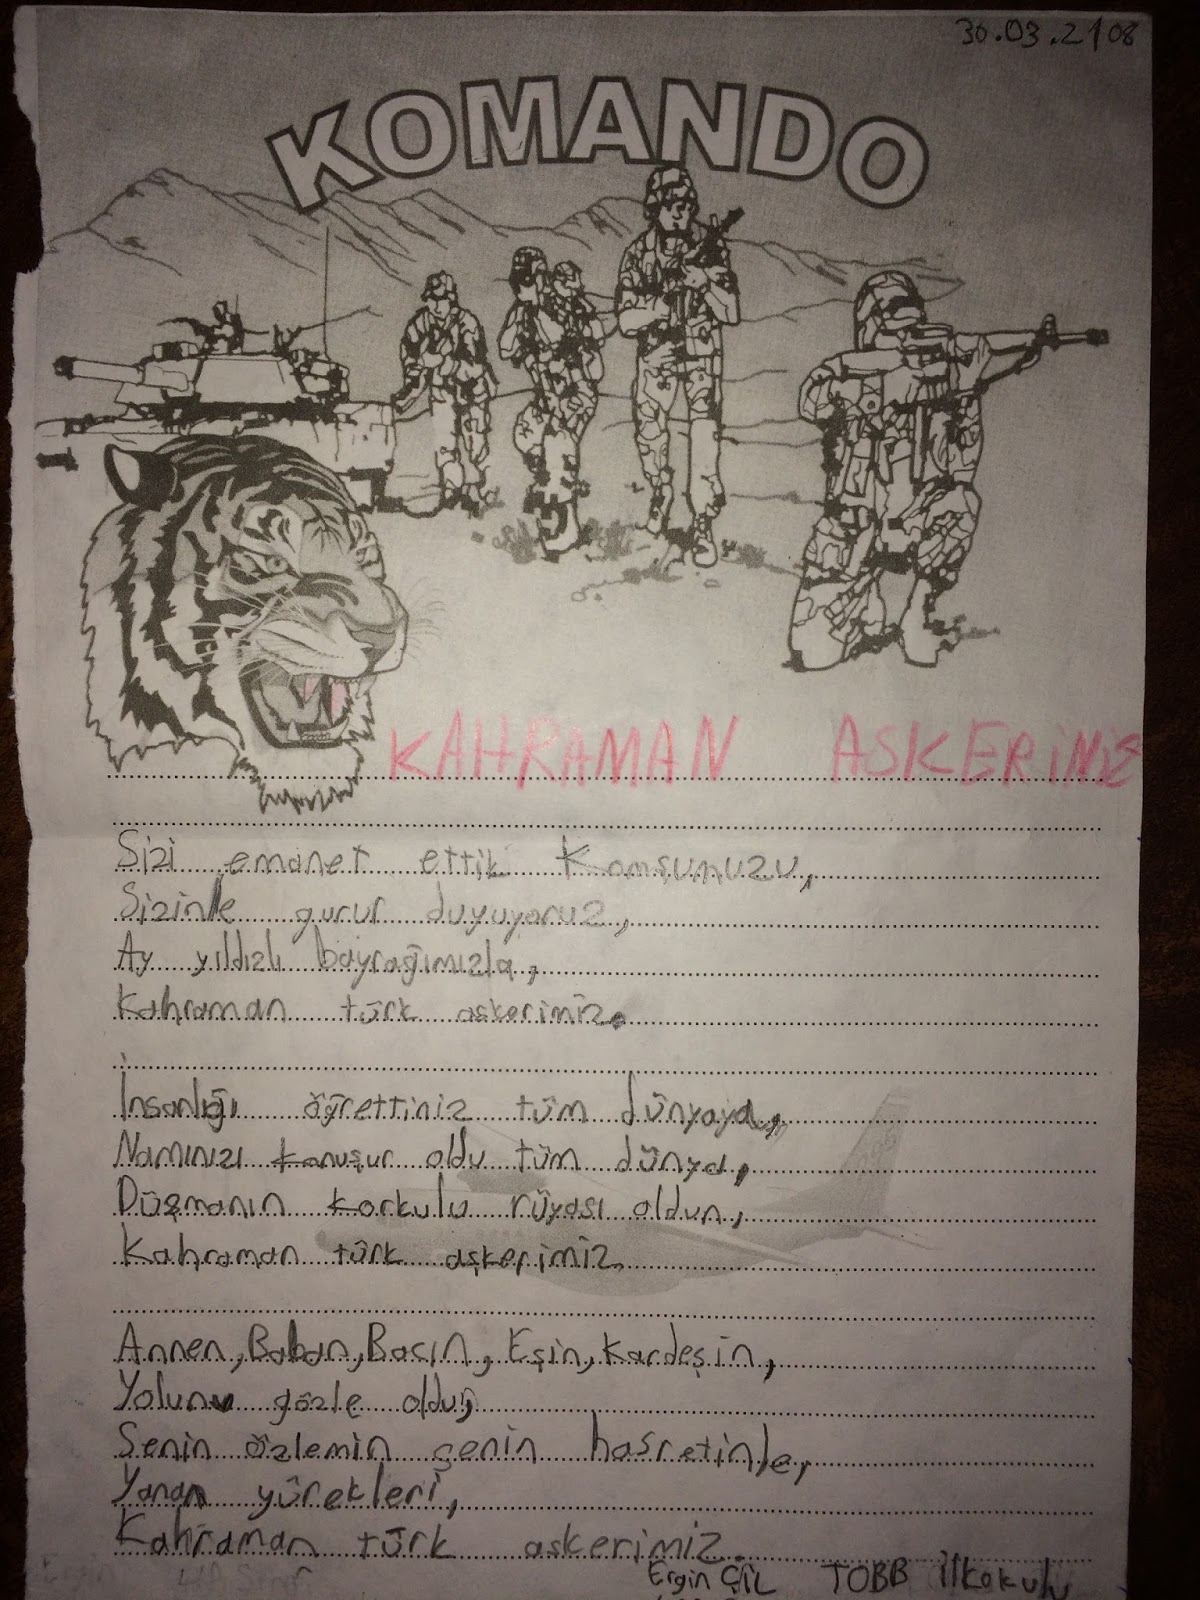 30.03.2108
KOMANDO
KAHRAMAN ASKERiMiZ
Sizi emanet ettik Komşumuzu,
Sizinle gurur duyuyoruz,
Ay yıldızlı bayrağımızla,
Kahraman türk askerimiz.
İnsanlığı öğrettiniz tüm dünyaya,
Namınızı konuşur oldu tüm dünya,
Düşmanın korkulu rüyası oldun,
Kahraman türk aşkerimiz
Annen, Baban, Bacın, Eşin, Kardeşin,
Yolunu gözle oldu,
Senin özlemin şenin hasretinle,
Yanan yürekleri,
Kahraman türk askerimiz.
Ergin ÇİL TOBB ilkokulu